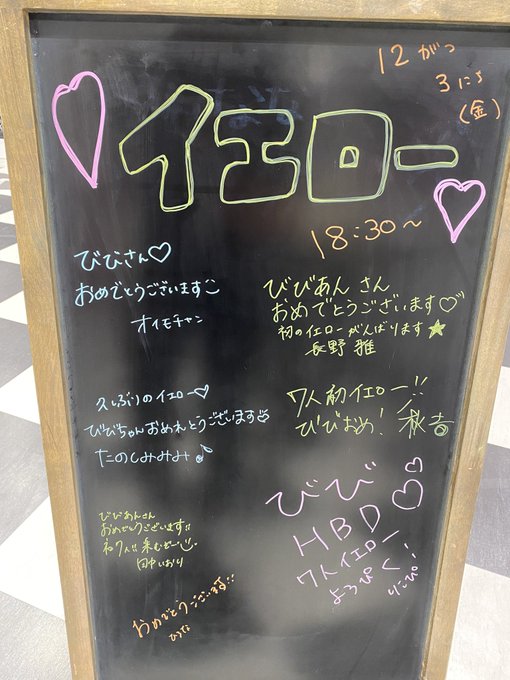 12がつ
3にち
(金)
イエロー
18:30〜
びびさん♡
おめでとうございます
オイモチャン
びびあん さん
おめでとうございます♡
初のイエローがんばります★
長野 雅
久しぶりのイエロー♡
びびちゃんおめれとうございます
たのしみみみ♪
7人初イエロー!!
びびおめ!
びびあんさん
おめでとうございます!!
初7人!!楽むぜー
田中いおり
びび♡
HBD♡
7人イエロー
よろぴく!
りこぴ
おめでとうございます!!
ひなた